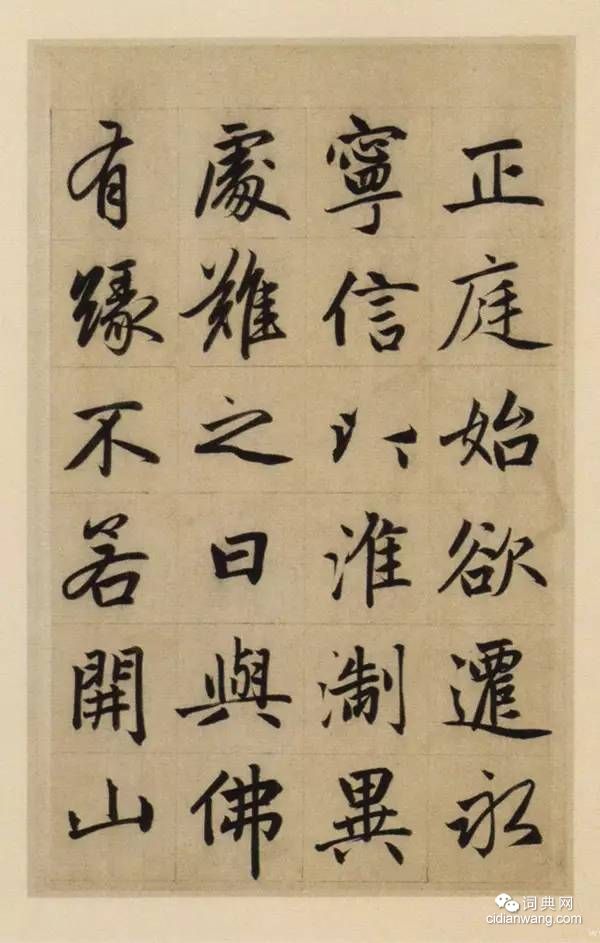 正庭始欲遷永
寧信以淮淛異
處難之曰與佛
有緣不若開山
词典网
cidianwang.com